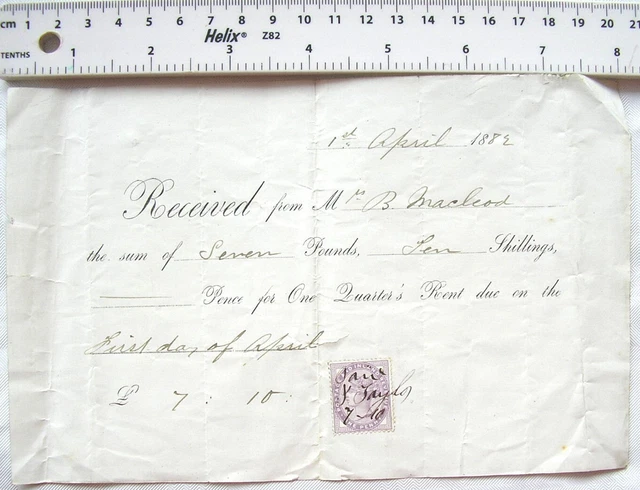 cm 1 2 3 4 5 6 7 8 9 10 11 12 13 14 15 16 17 18 19 20 21
Helix® Z82
TENTHS 1 2 3 4 5 6 7 8
1st April 1882
Received from Mrs B. Macleod
the sum of Seven Pounds, Ten Shillings,
Pence for One Quarter's Rent due on the
First day of April
£ 7 : 10 :
7-10